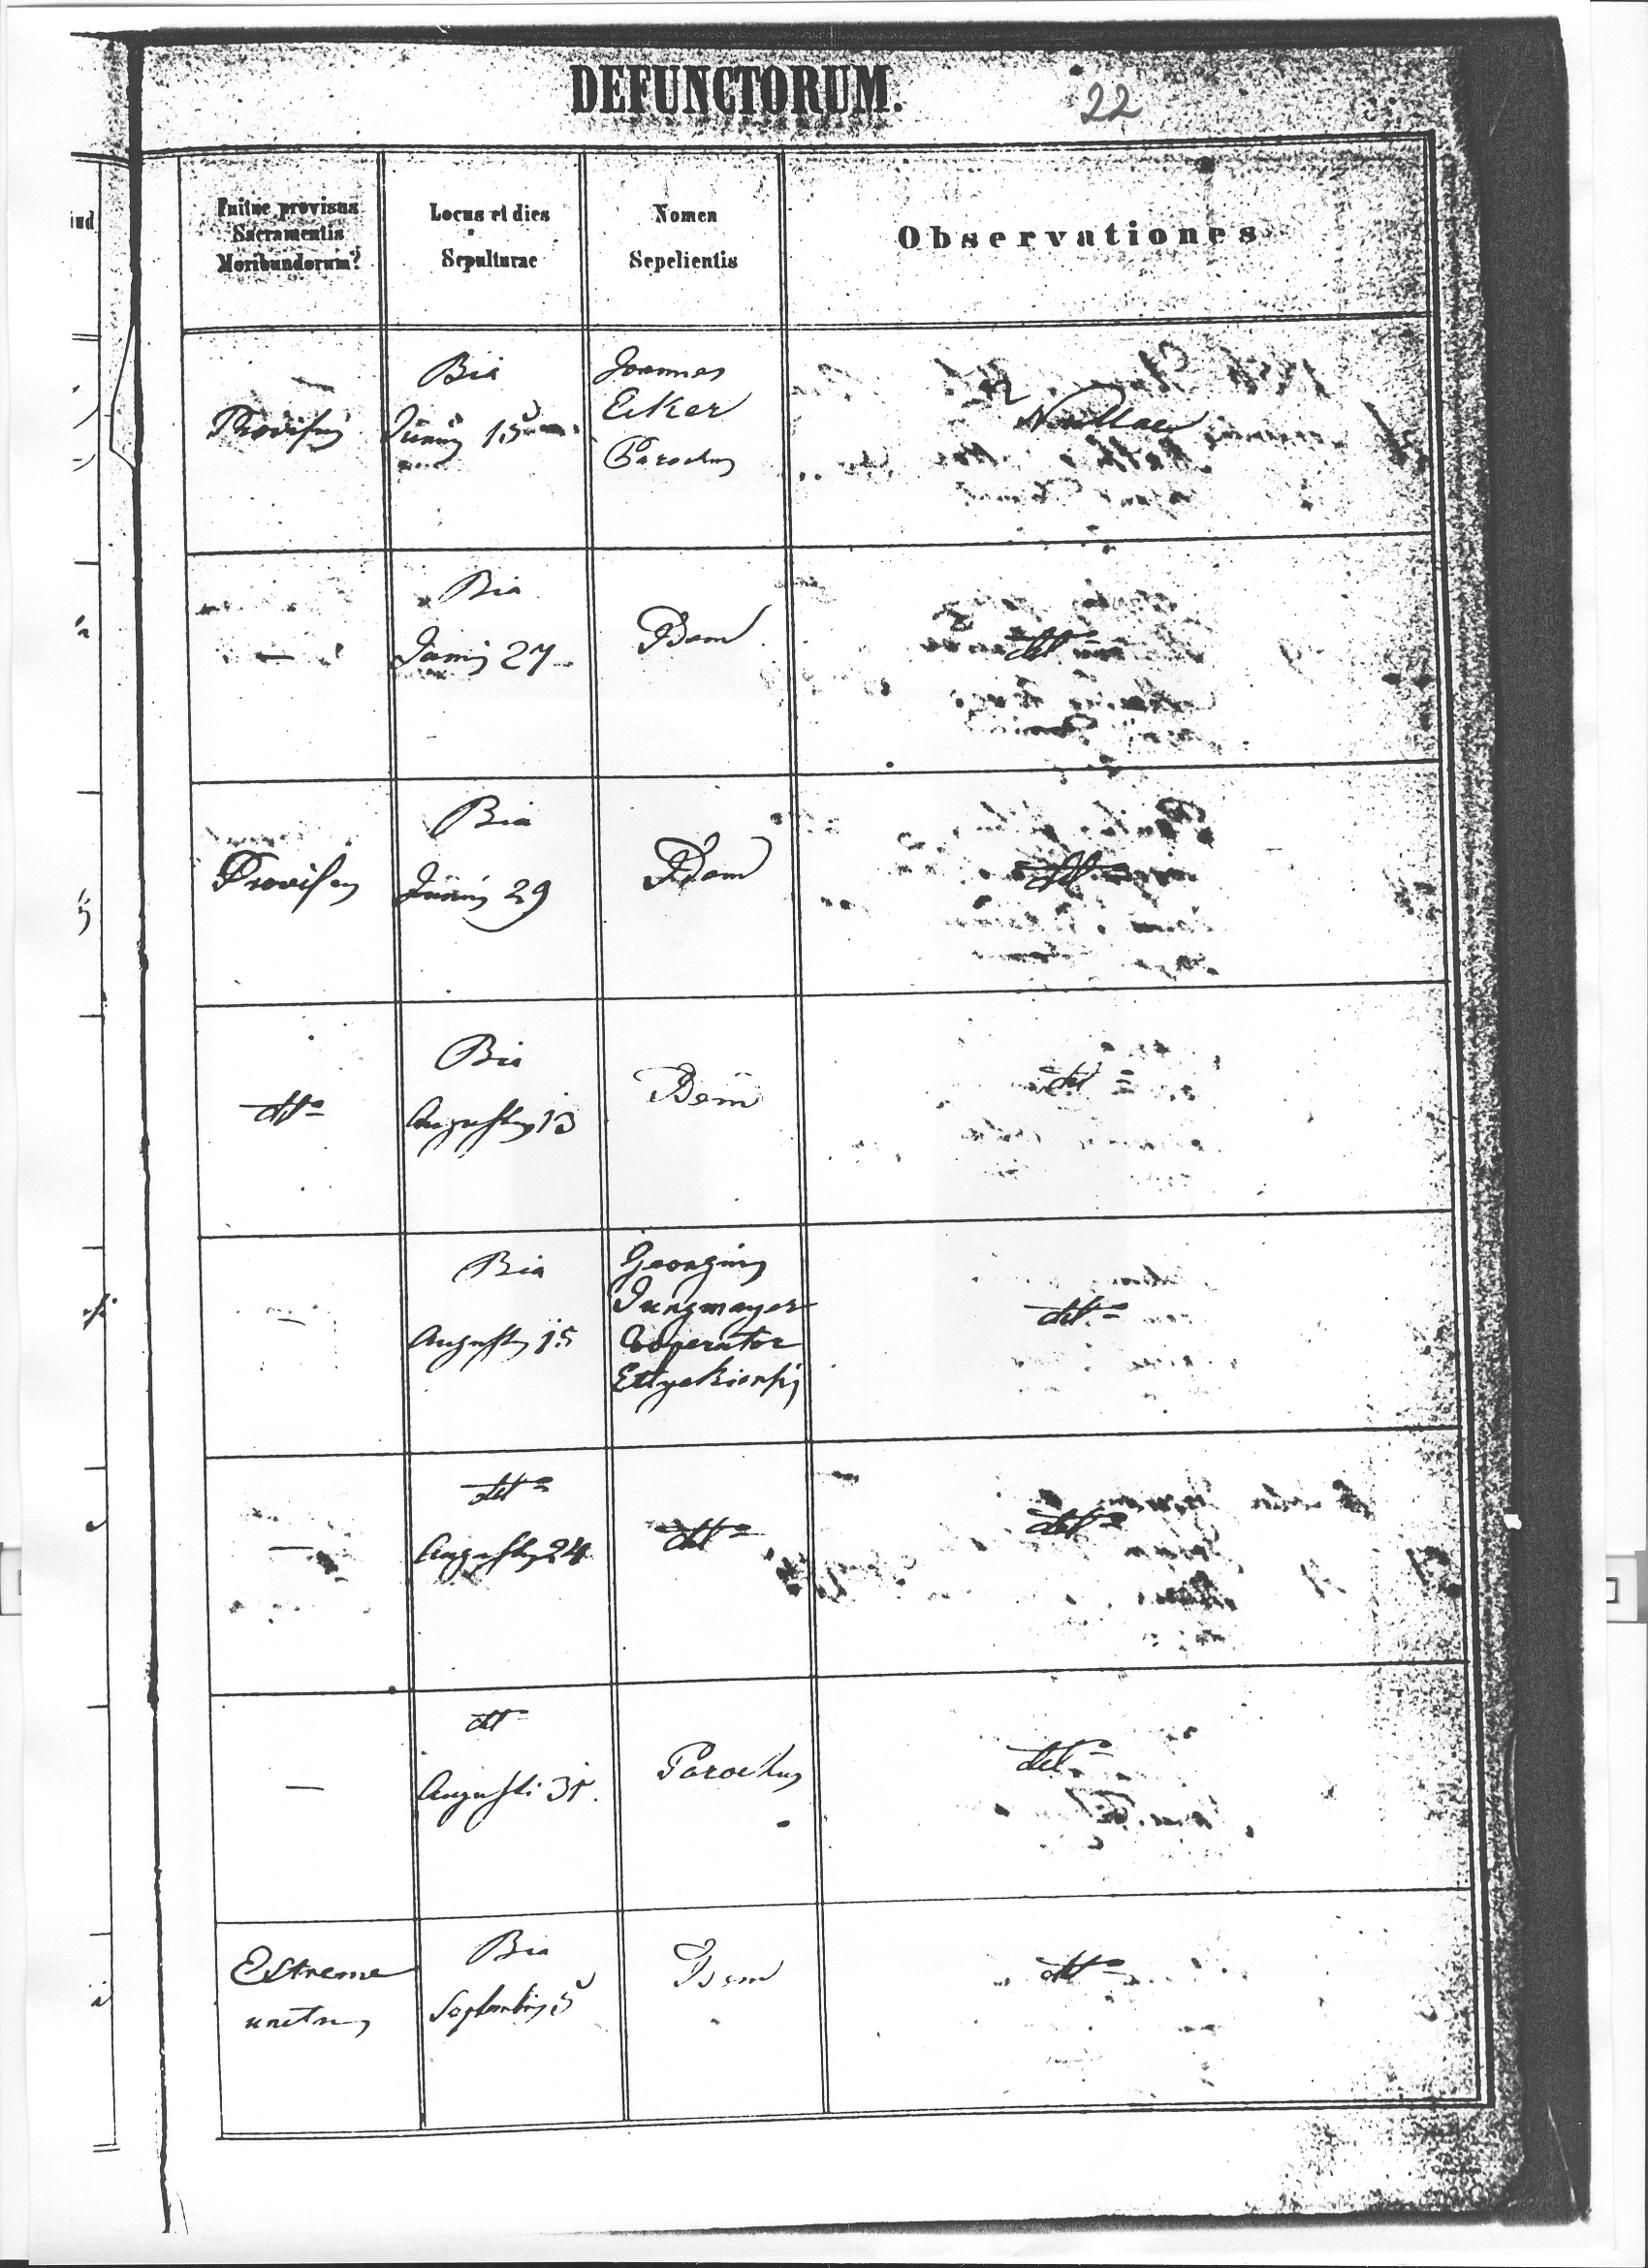 DEFUNCTORUM.
22
Fuitne provisus
Sacramentis
Moribundorum?
Locus et dies
Sepulturae
Nomen
Sepelientis
Observationes
Provisus
Bia
Junij 15
Joannes
Ecker
Parochus
Nullae
—
Bia
Junij 27
Idem
dtto
Provisus
Bia
Junij 29
Idem
dtto
dtto
Bia
Augusti 13
Idem
dtto
—
Bia
Augusti 15
Georgius
Jungmayer
Cooperator
Ettyekiensis
dtto
—
dtto
Augusti 24
dtto
dtto
—
dtto
Augusti 31.
Parochus
dtto
Extreme
unctus
Bia
Septembris 5
Idem
dtto